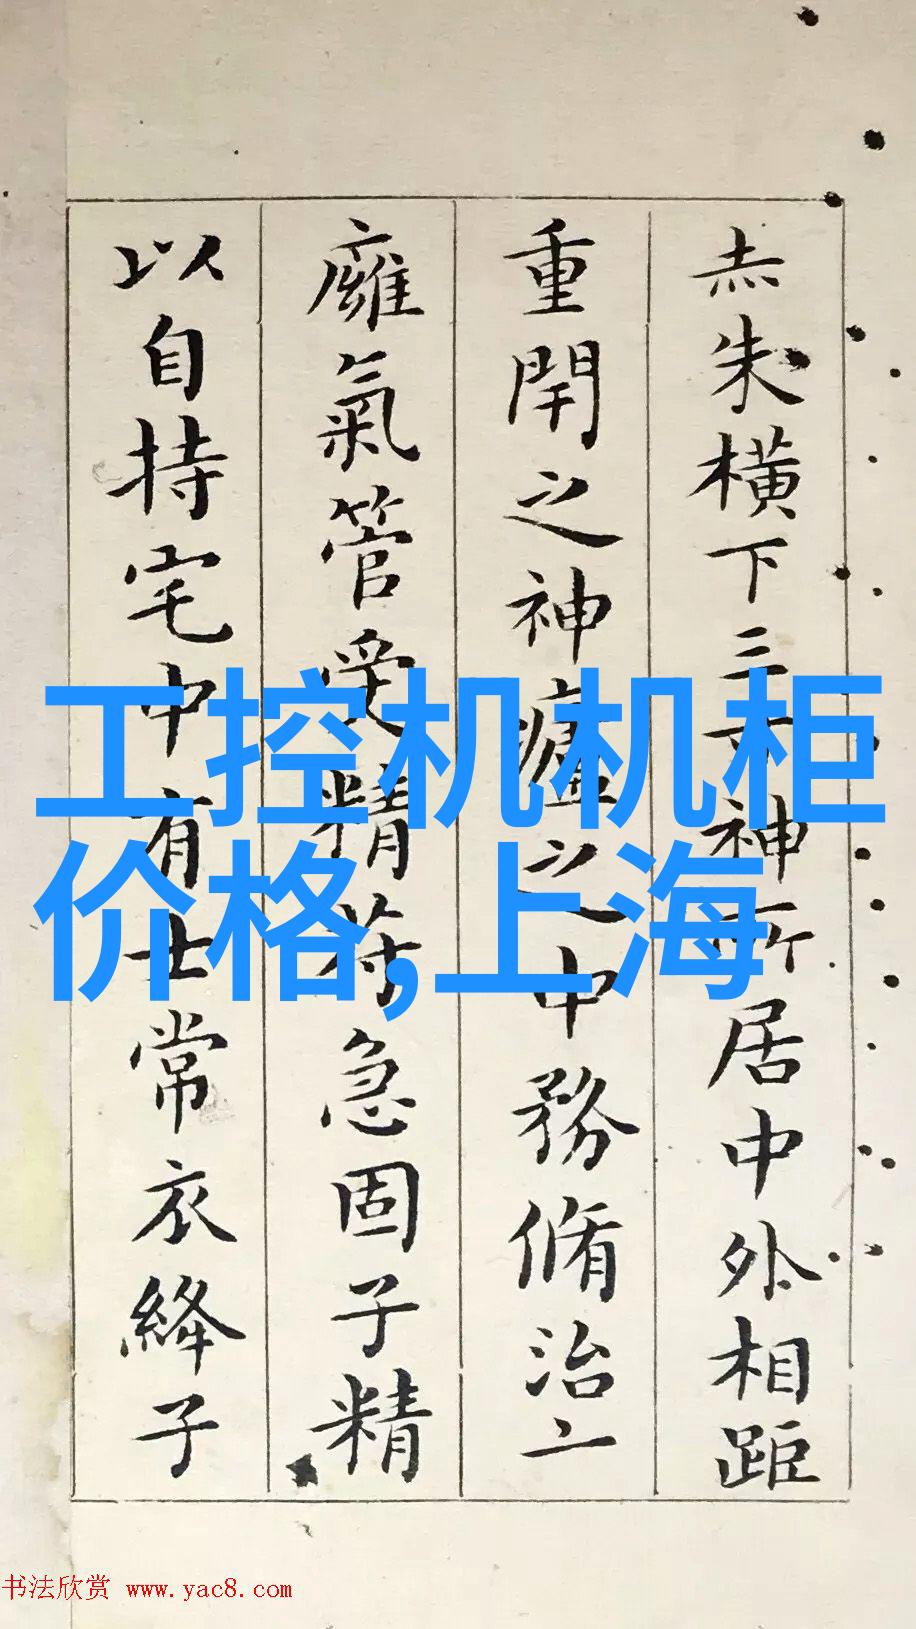 赤朱橫下三寸神所居中外相距
重閉之神廬之中務脩治二
廱氣管受精符急固子精
以自持宅中有士常衣絳子
工控机机柜
价格,上海
书法欣赏 www.yac8.com